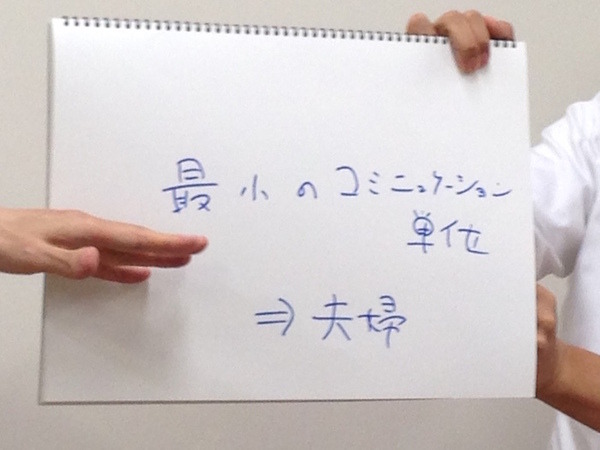 最小のコミニュケーション
単位
⇒夫婦